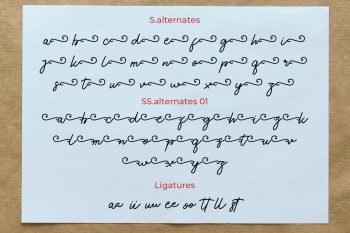 S.alternates
a b c d e f g h i
j k l m n o p q r
s t u v w x y z
SS.alternates 01
a b c d e f g h i j k
l m n o p q r s t u v
w x y z
Ligatures
aa ii uu ee oo tt ll st